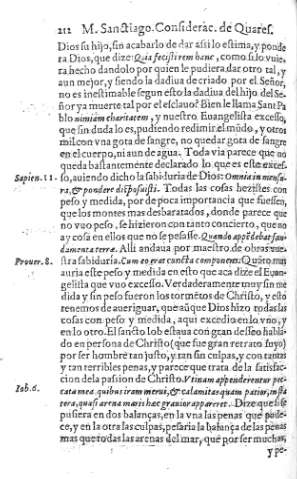 212 M. Sanctiago. Considerac. de Quares.
Dios su hijo, sin acabarlo de dar assi lo estima, y ponde
ra Dios, que dize: Quia fecisti rem hanc, como si lo vuie.
ra hecho dandolo por quien le pudiera dar otro tal, y
aun mejor, y siendo la dadiua de criado por el Señor,
no es inestimable segun esto la dadiua del hijo del Se-
ñor ya muerte tal por el esclauo? Bien le llama Sant Pa
blo nimiam charitatem, y nuestro Euangelista excesso,
que sin duda lo es, pudiendo redimir el mũdo, y otros
mil con vna gota de sangre, no quedar gota de sangre
en el cuerpo, ni aun de agua. Toda via parece que no
queda bastantemente declarado lo que es este exces-
Sapien. 11. so, auiendo dicho la sabiduria de Dios: Omnia in mensu-
ra, & pondere disposuisti. Todas las cosas hezistes con
peso y medida, por de poca importancia que fuessen,
que los montes mas desbaratados, donde parece que
no vuo peso, se hizieron con tanto concierto, que no
ay cosa en ellos que no se pesasse. Quando appẽdebat fun-
damenta terræ. Alli andaua por maestro de obras vue-
Prouer. 8. stra sabiduria. Cum eo erat cuncta componens. Quãto mas
auria este peso y medida en esto que aca dize el Euan-
gelista que vuo excesso. Verdaderamente muy sin me
dida y sin peso fueron los tormẽtos de Christo, y esto
tenemos de aueriguar, que aũque Dios hizo todas las
cosas con peso y medida, aqui excedio en lo vno, y
en lo otro. El sancto Iob estaua con gran desseo habla-
do en persona de Christo (que fue gran retrato suyo)
por ser hombre tan justo, y tan sin culpas, y con tantas
y tan terribles penas, y parece que trata de la satisfac-
cion de la passion de Christo. Vtinam appenderentur pec-
Iob. 6. cata mea quibus iram merui, & calamitas quam patior, in sta
tera, quasi arena maris hæc grauior appareret. Dize que se
pusiera en dos balanças, en la vna las penas que pade-
ce, y en la otra las culpas, pesaria la balança de las penas
mas que todas las arenas del mar, que por ser muchas,
y pe-